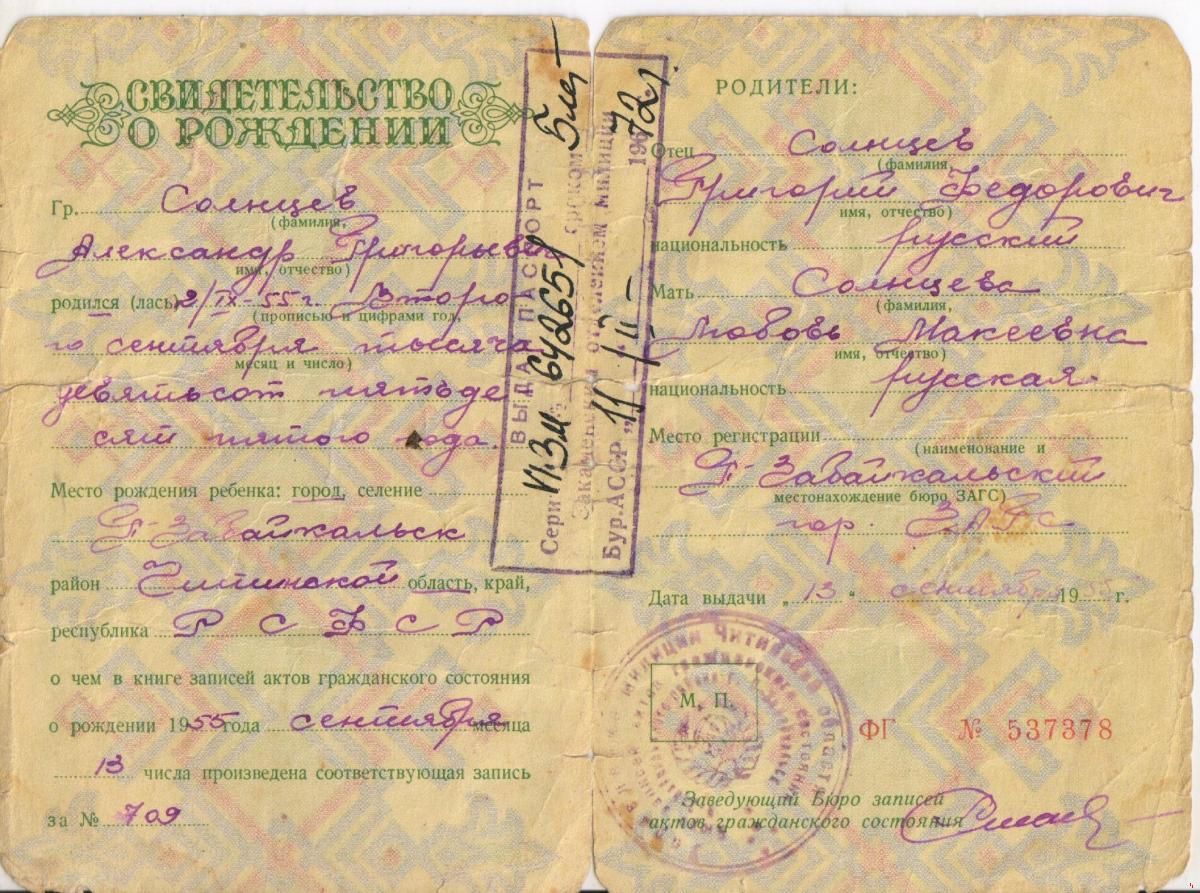 СВИДЕТЕЛЬСТВО
О РОЖДЕНИИ
Гр. Солнцев
(фамилия,
Александр Григорьевич
имя, отчество)
родился (лась) 2/IX-55 г. Второ
(прописью и цифрами год,
го сентября тысяча
месяц и число)
девятьсот пятьде
сят пятого года.
Место рождения ребенка: город, селение
П-Забайкальск
район Читинской область, край,
республика Р С Ф С Р
о чем в книге записей актов гражданского состояния
о рождении 1955 года сентября месяца
13 числа произведена соответствующая запись
за № 709
ВЫДАН ПАСПОРТ
Серия № 642651
Закаменским отделением милиции
Бур.АССР „11" II 1972 г.
РОДИТЕЛИ:
Отец Солнцев
(фамилия
Григорий Федорович
имя, отчество)
национальность русский
Мать Солнцева
(фамилия,
Любовь Макеевна
имя, отчество)
национальность русская
Место регистрации
(наименование и
П-Забайкальский
местонахождение бюро ЗАГС)
гор. ЗАГС
Дата выдачи „13" сентября 1955 г.
М. П.
ФГ № 537378
Заведующий Бюро записей
актов гражданского состояния